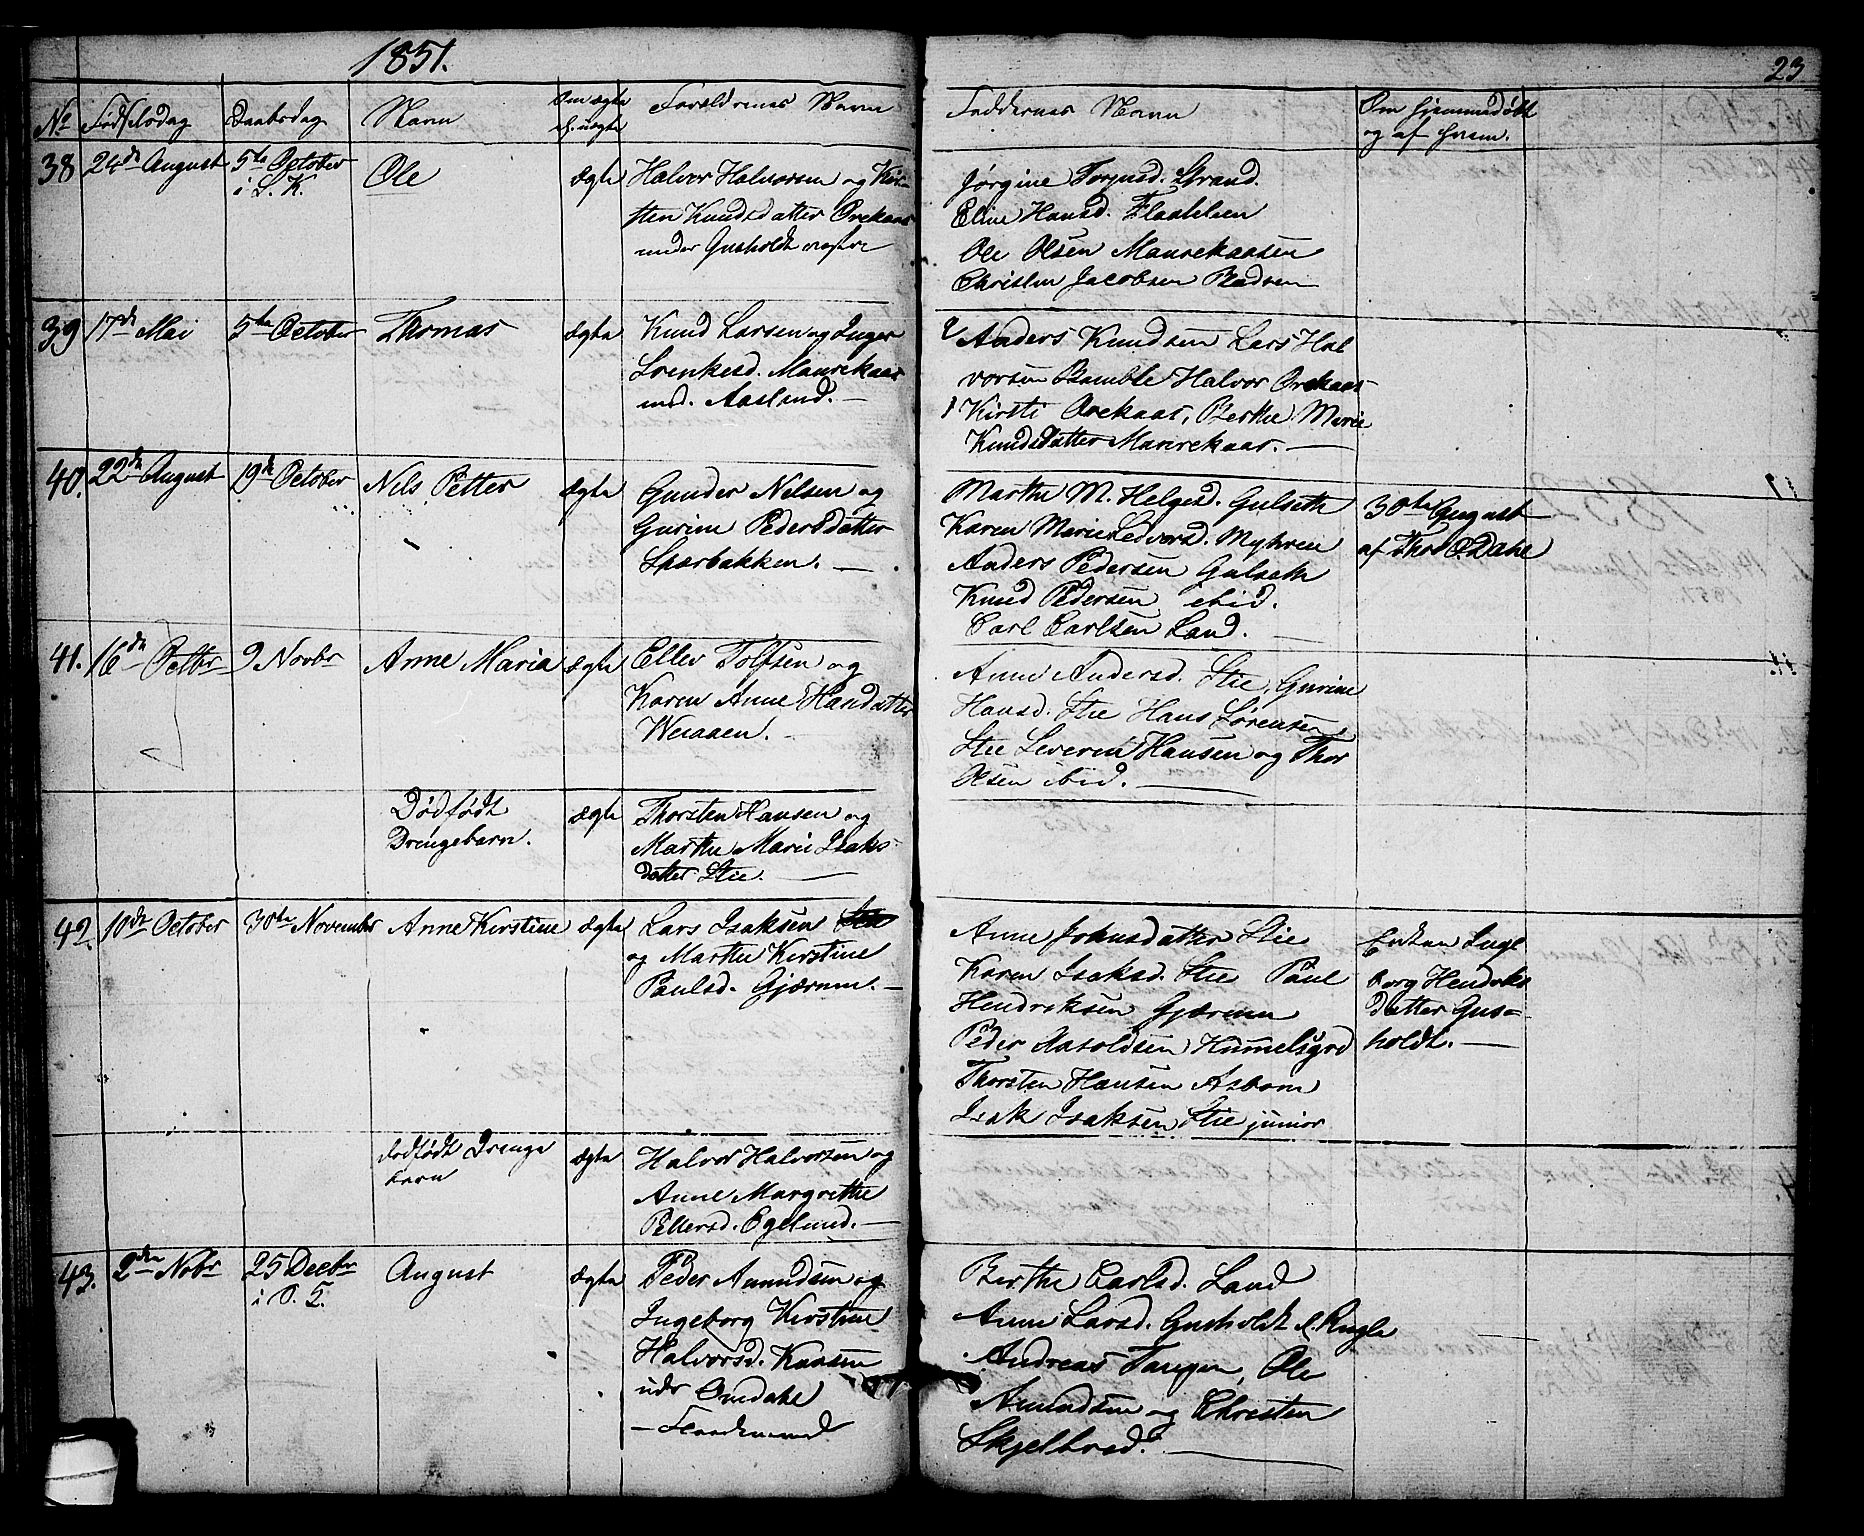 1851.
23
No Fødselsdag Daabsdag Navn Om ægte el. uægte Forældrenes Navn Faddernes Navn Om hjemmedøbt og af hvem.
38 24de August 5te October i S. K. Ole ægte
Halvor Halvorsen og Kir-
sten Knudsdatter Orekaas
under Gusholdt
Jørgine Torjusd. Strand.
Eline Hansd.
Ole Olsen Maurekaasen
Christen Jacobsen
39 17de Mai 5te October Thomas ægte
Knud Larsen og Inger
Maurekaas
Aaslund.
Anders Knudsen Lars Hal
vorsen Bamble Halvor Orekaas
Kirsti Orekaas, Berthe Marie
Knudsdatter Maurekaas.
40. 22de August 19de October Nils Petter ægte
Gunder Nilsen og
Gurine Pedersdatter
Sperbakken.
Marthe M. Helgesd. Gulseth
Karen Marie Myhren
Anders Pedersen Gulseth
Knud Pedersen ibid.
Carl Carlsen Land.
30te August
af Thor O Dahl
41. 16de Octbr 9 Novbr Anne Maria ægte
Ellev Tolfsen og
Karen Anne Hansdatter
Weiaaen.
Anne Andersd. Stie, Gurine
Hansd. Stie Hans Sørensen
Stie Severin Hansen og Thor
Olsen ibid.
Dødfødt
Drengebarn.
ægte
Thorsten Hansen og
Marthe Marie Isaks
datter Stie.
42. 10de October 30te November Anne Kirstine ægte
Lars Isaksen
og Marthe Kirstine
Paulsd. Gjærum.
Anne Johnsdatter Stie
Karen Isaksd. Stie Paul
Hendriksen Gjærum
Peder Aasoldsen Hummelsgrd
Thorsten Hansen Asborn
Isak Isaksen Stie junior
Enken Inge
borg Hendriks
datter Gus=
holdt.
dødfødt Drenge
barn
ægte
Halvor Halvorsen og
Anne Margrethe
Pettersd. Egelund.
43. 2den Nobr 25 Decbr i S. K. August ægte
Peder Amundsen og
Ingeborg Kirstine
Halvorsd. Kaasen
udr Omdahl
Berthe Carlsd. Land
Anne Larsd. Gusholdt
Andreas Tangen, Ole
Amundsen og Christen
Skjelbred.
1852